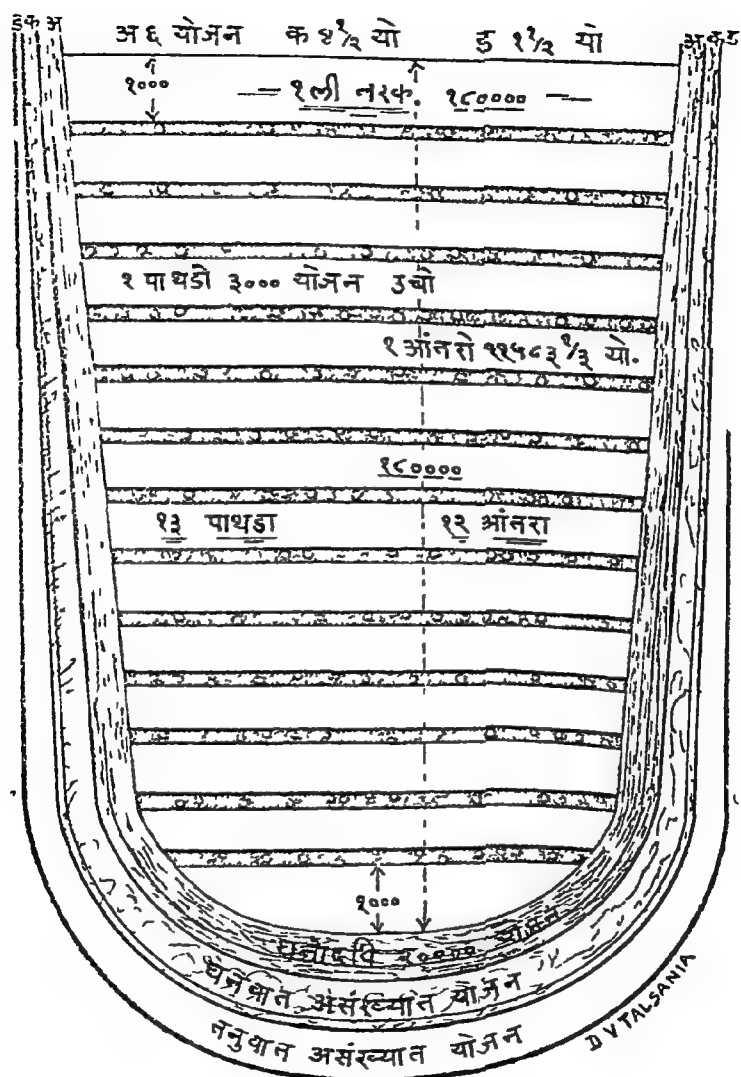 ड क अ
अ ६ योजन क ४ १/२ यो ड १ १/२ यो
अ क ड
१०००
१ली नरक. १८००००
१ पाथडो ३००० योजन उचो
१ आंनरो ११५८३ १/३ यो.
१८००००
१३ पाथडा १२ आंनरा
१०००
घनोदधि २०००० योजन
घनवात असंख्यात योजन
तनुवात असंख्यात योजन
D V TALSANIA